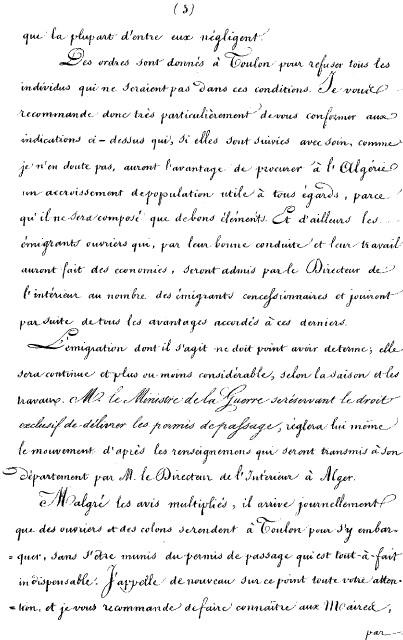 (3)
que la plupart d'entre eux négligent.
Des ordres sont donnés à Toulon pour refuser tous les
individus qui ne seraient pas dans ces conditions. Je vous
recommande donc très particulièrement de vous conformer aux
indications ci-dessus qui, si elles sont suivies avec soin, comme
je n'en doute pas, auront l'avantage de procurer à l'Algérie
un accroissement de population utile à tous égards, parce
qu'il ne sera composé que de bons éléments. Et d'ailleurs les
émigrants ouvriers qui, par leur bonne conduite et leur travail
auront fait des économies, seront admis par le Directeur de
l'intérieur au nombre des émigrants concessionnaires et jouiront
par suite de tous les avantages accordés à ces derniers.
L'émigration dont il s'agit ne doit point avoir de terme; elle
sera continue et plus ou moins considérable, selon la saison et les
travaux. Mr. le Ministre de la Guerre se réservant le droit
exclusif de délivrer les permis de passage, réglera lui même
le mouvement d'après les renseignemens qui seront transmis à son
département par M. le Directeur de l'Intérieur à Alger.
Malgré les avis multipliés, il arrive journellement
que des ouvriers et des colons se rendent à Toulon pour s'y embar-
=quer, sans s'être munis du permis de passage qui est tout-à-fait
indispensable. J'appelle de nouveau sur ce point toute votre atten-
=tion, et je vous recommande de faire connaître aux Maires,
par